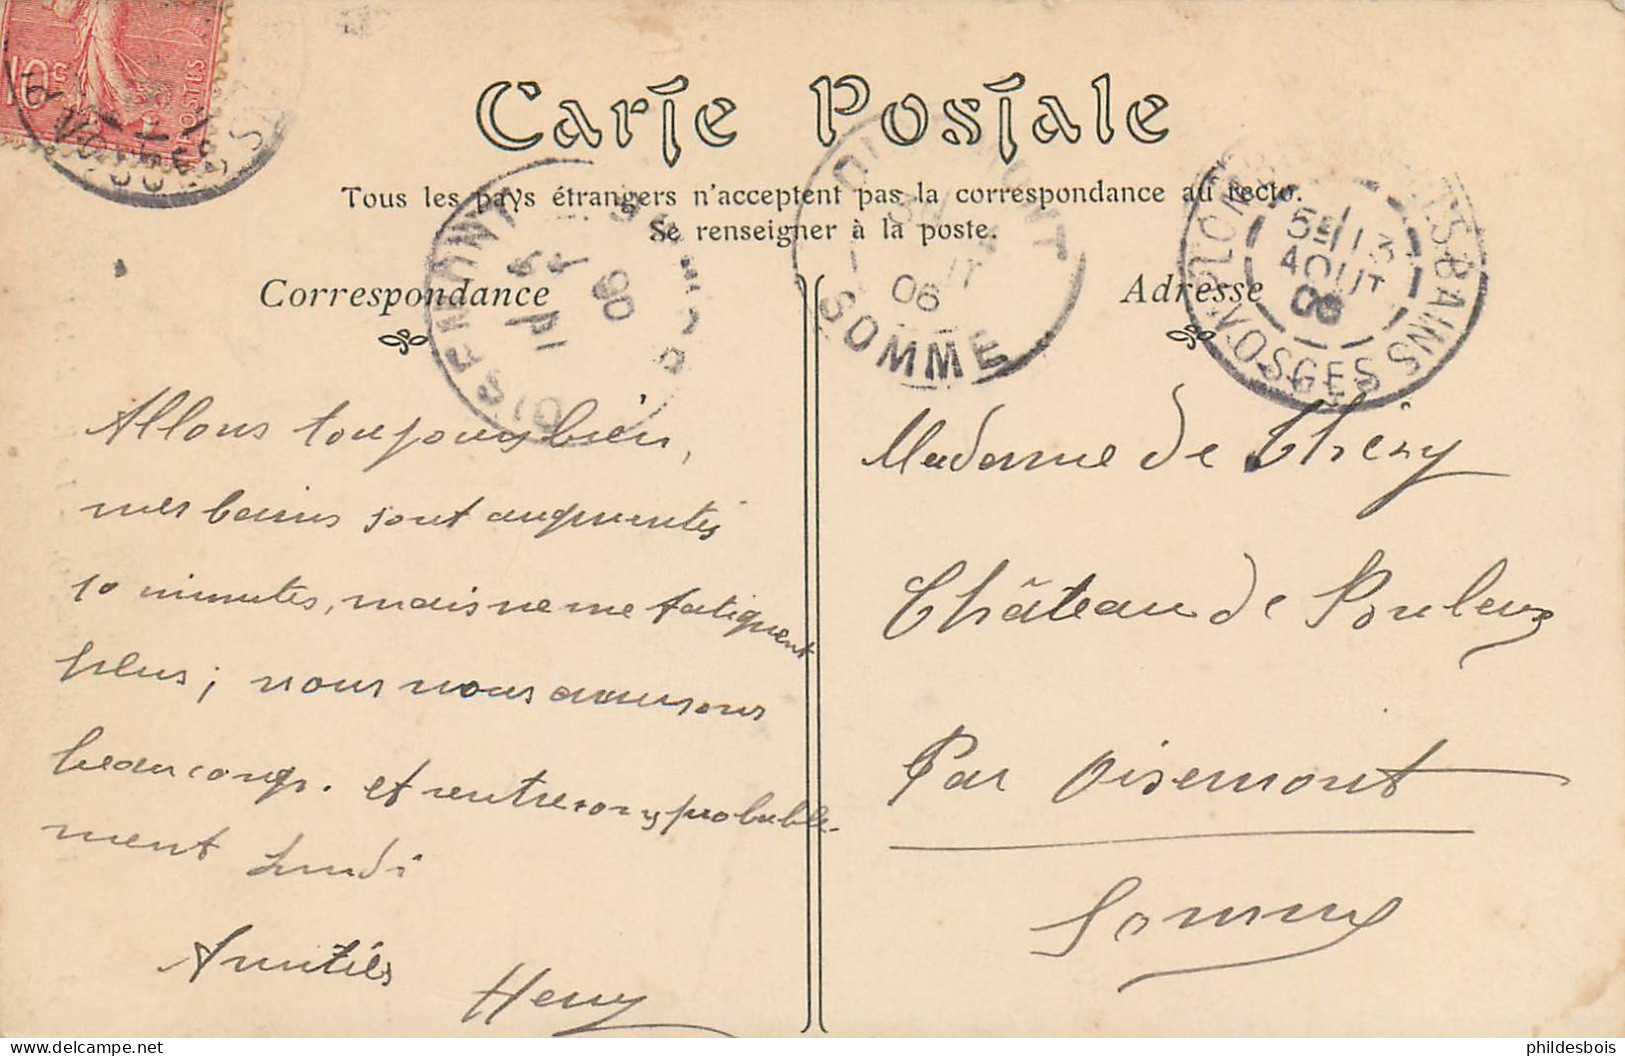 10c
POSTES
Carte Postale
Tous les pays étrangers n'acceptent pas la correspondance au recto.
Se renseigner à la poste.
Correspondance
Allons toujours bien,
mes bains sont augmentés
10 minutes, mais ne me fatiguent
plus; nous nous amusons
beaucoup. et rentrerons probable-
ment Lundi
Amitiés
Henry
OISEMONT
SOMME
06
OISEMONT
06
SOMME
PLOMBIERES LES BAINS
5E/13
AOUT
06
VOSGES
Adresse
Madame de Thézy
Château de
Par Oisemont
Somme
phildesbois